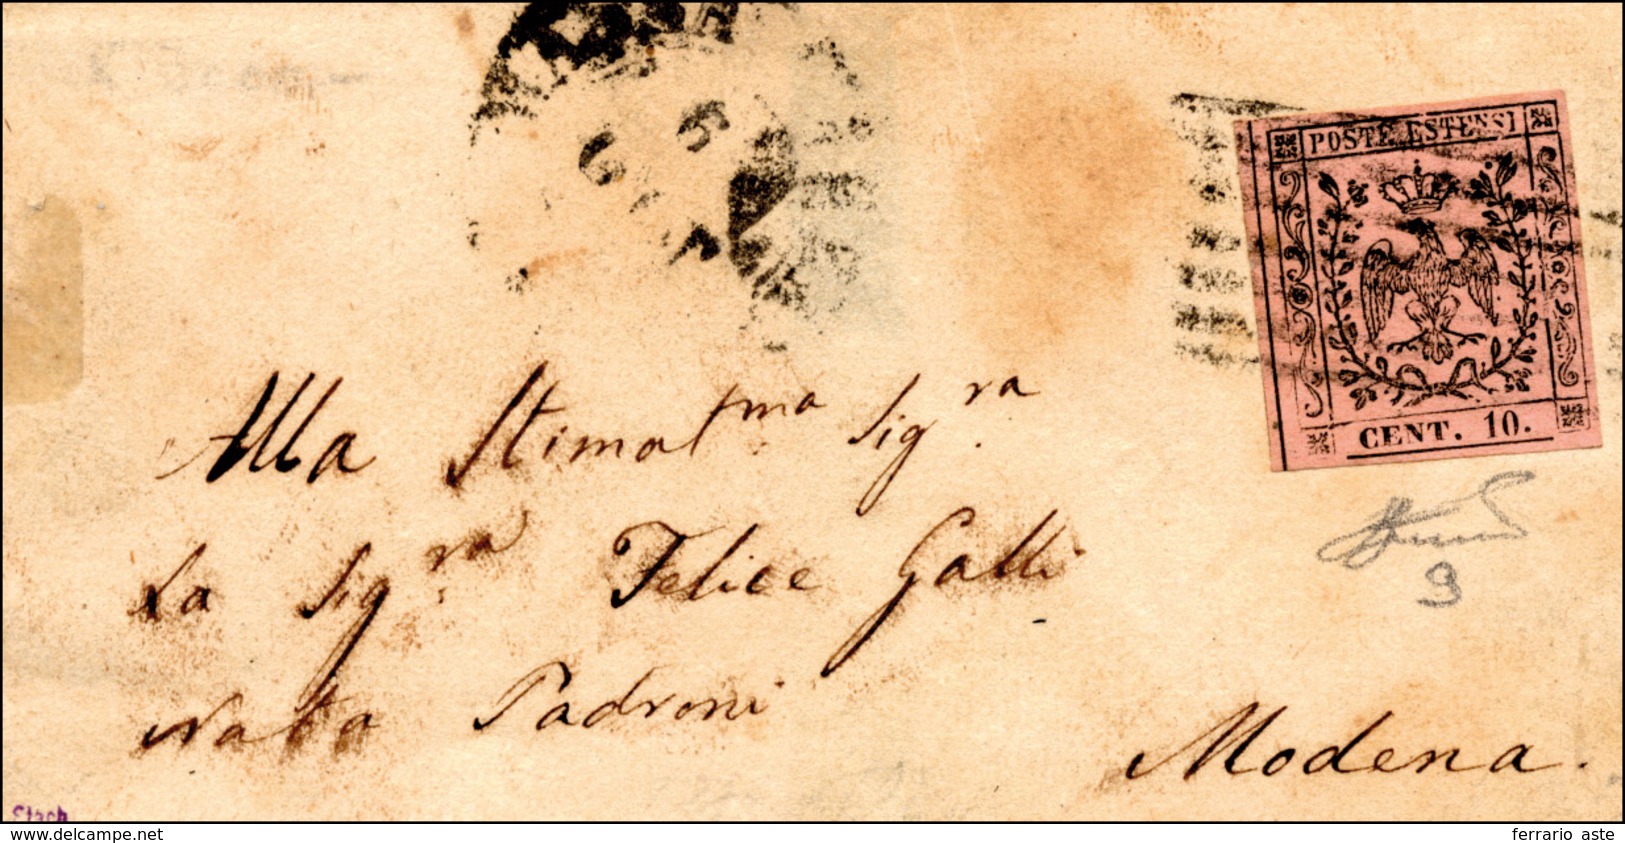 POSTE ESTENSI
CENT. 10.
Alla Stimat.ma Sig.ra
La Sig.ra Felice Galli
Nata Padroni
9
Modena.
www.delcampe.net
ferrario aste